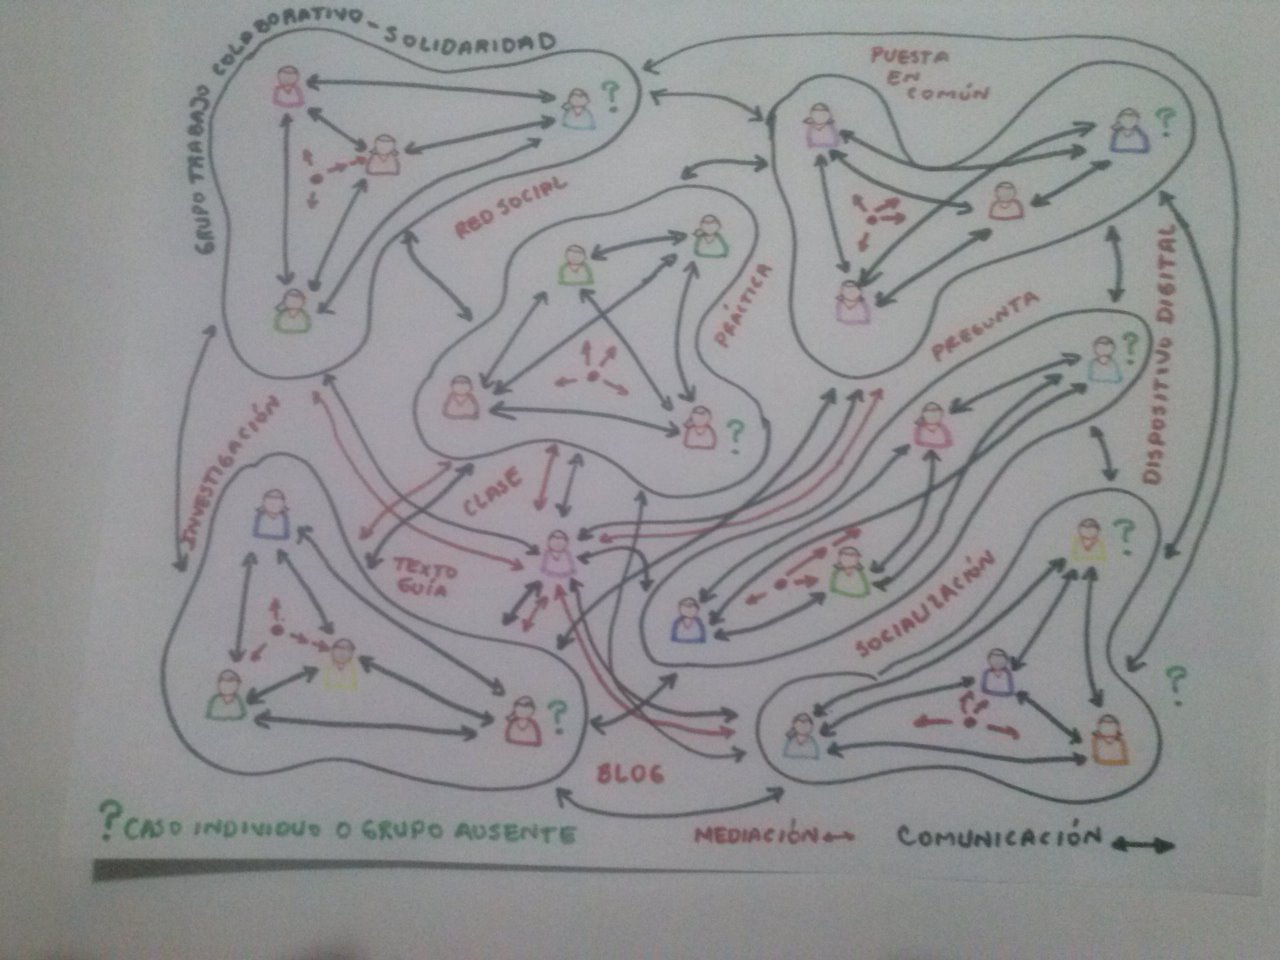 GRUPO TRABAJO COLABORATIVO - SOLIDARIDAD
?
PUESTA
EN
COMÚN
?
RED SOCIAL
PRÁCTICA
?
PREGUNTA
?
DISPOSITIVO DIGITAL
INVESTIGACIÓN
CLASE
TEXTO
GUÍA
?
SOCIALIZACIÓN
?
?
BLOG
? CASO INDIVIDUO O GRUPO AUSENTE
MEDIACIÓN
COMUNICACIÓN